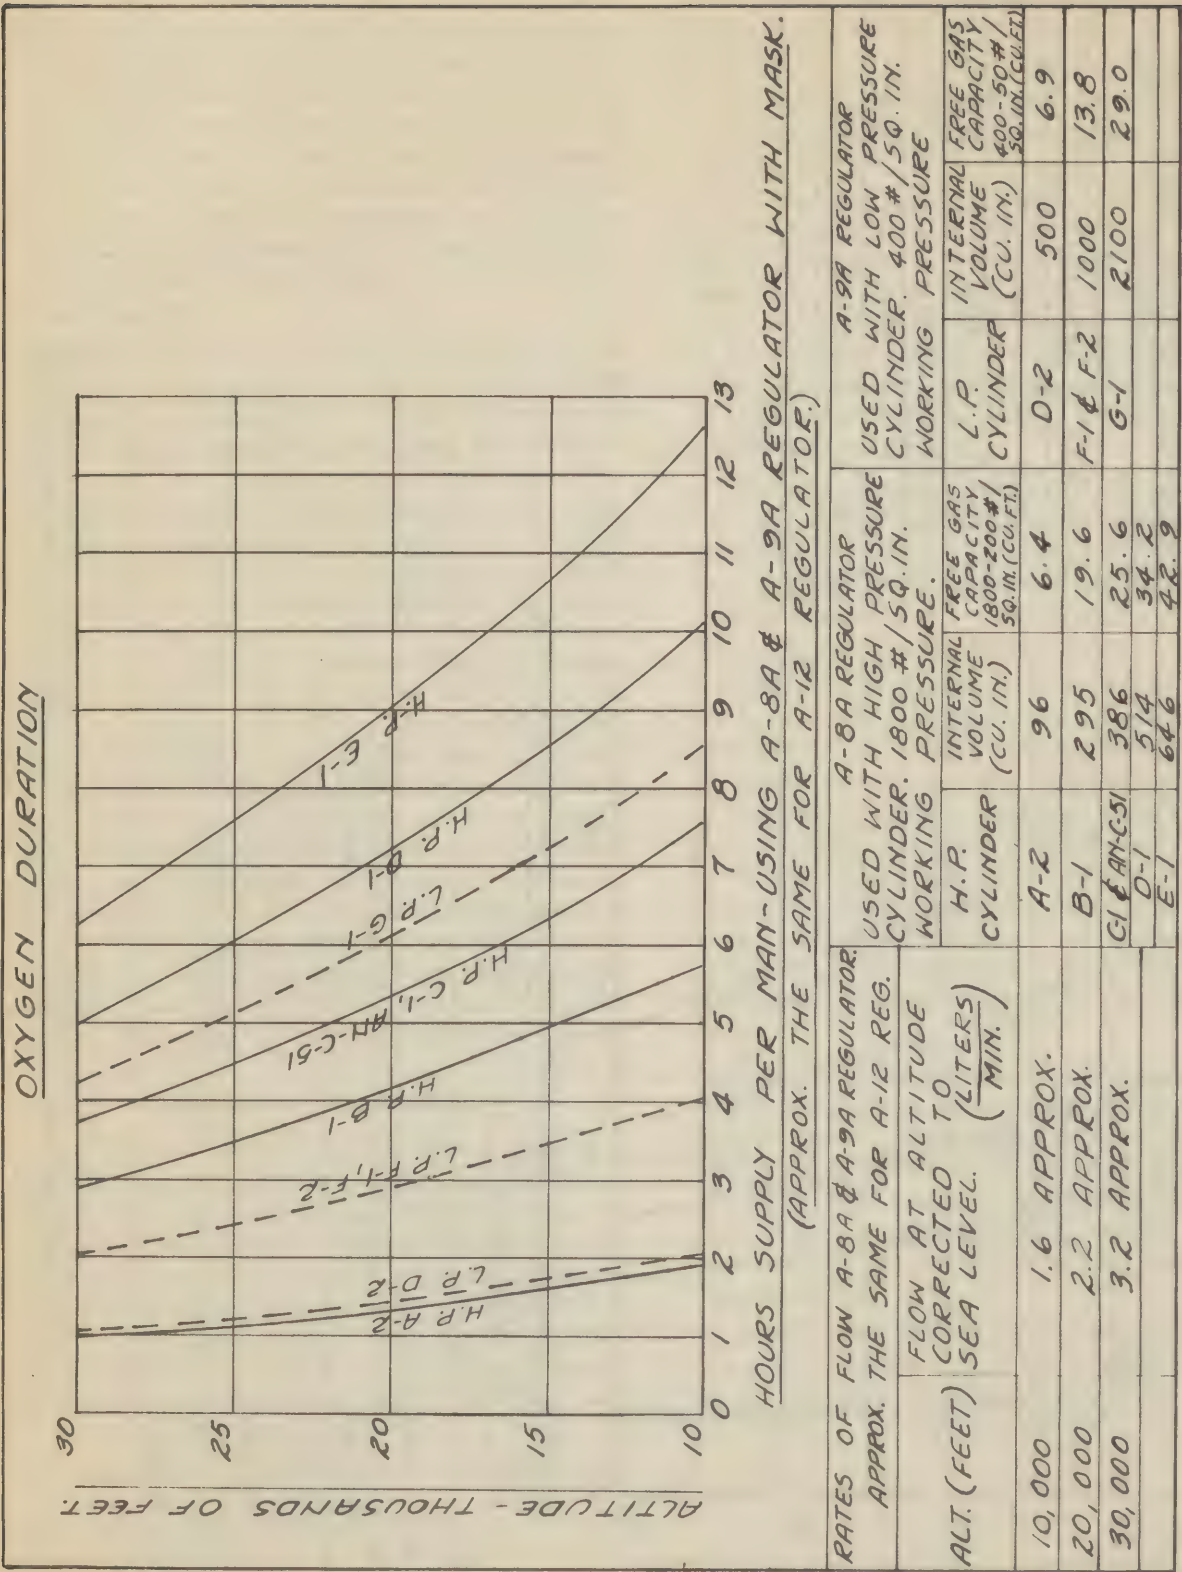 OXYGEN DURATION
ALTITUDE - THOUSANDS OF FEET.
30
25
20
15
10
H.P. A-2
L.P. D-2
L.P. F-1, F-2
H.P. B-1
H.P. C-1,
AN-C-51
L.P. G-1
H.P. D-1
H.P.
E-1
0 1 2 3 4 5 6 7 8 9 10 11 12 13
HOURS SUPPLY PER MAN-USING A-8A & A-9A REGULATOR WITH MASK.
(APPROX. THE SAME FOR A-12 REGULATOR.)
RATES OF FLOW A-8A & A-9A REGULATOR.
APPROX. THE SAME FOR A-12 REG.
ALT. (FEET)
FLOW AT ALTITUDE
CORRECTED TO
SEA LEVEL. (LITERS/MIN.)
10,000 1.6 APPROX.
20,000 2.2 APPROX.
30,000 3.2 APPROX.
A-8A REGULATOR
USED WITH HIGH PRESSURE
CYLINDER. 1800 #/SQ.IN.
WORKING PRESSURE.
H.P.
CYLINDER
INTERNAL
VOLUME
(CU. IN.)
FREE GAS
CAPACITY
1800-200#/
SQ.IN.(CU.FT.)
A-2 96 6.4
B-1 295 19.6
C-1 & AN-C-51 386 25.6
D-1 514 34.2
E-1 646 42.9
A-9A REGULATOR
USED WITH LOW PRESSURE
CYLINDER. 400 #/SQ. IN.
WORKING PRESSURE
L.P.
CYLINDER
INTERNAL
VOLUME
(CU. IN.)
FREE GAS
CAPACITY
400-50#/
SQ.IN.(CU.FT.)
D-2 500 6.9
F-1 & F-2 1000 13.8
G-1 2100 29.0